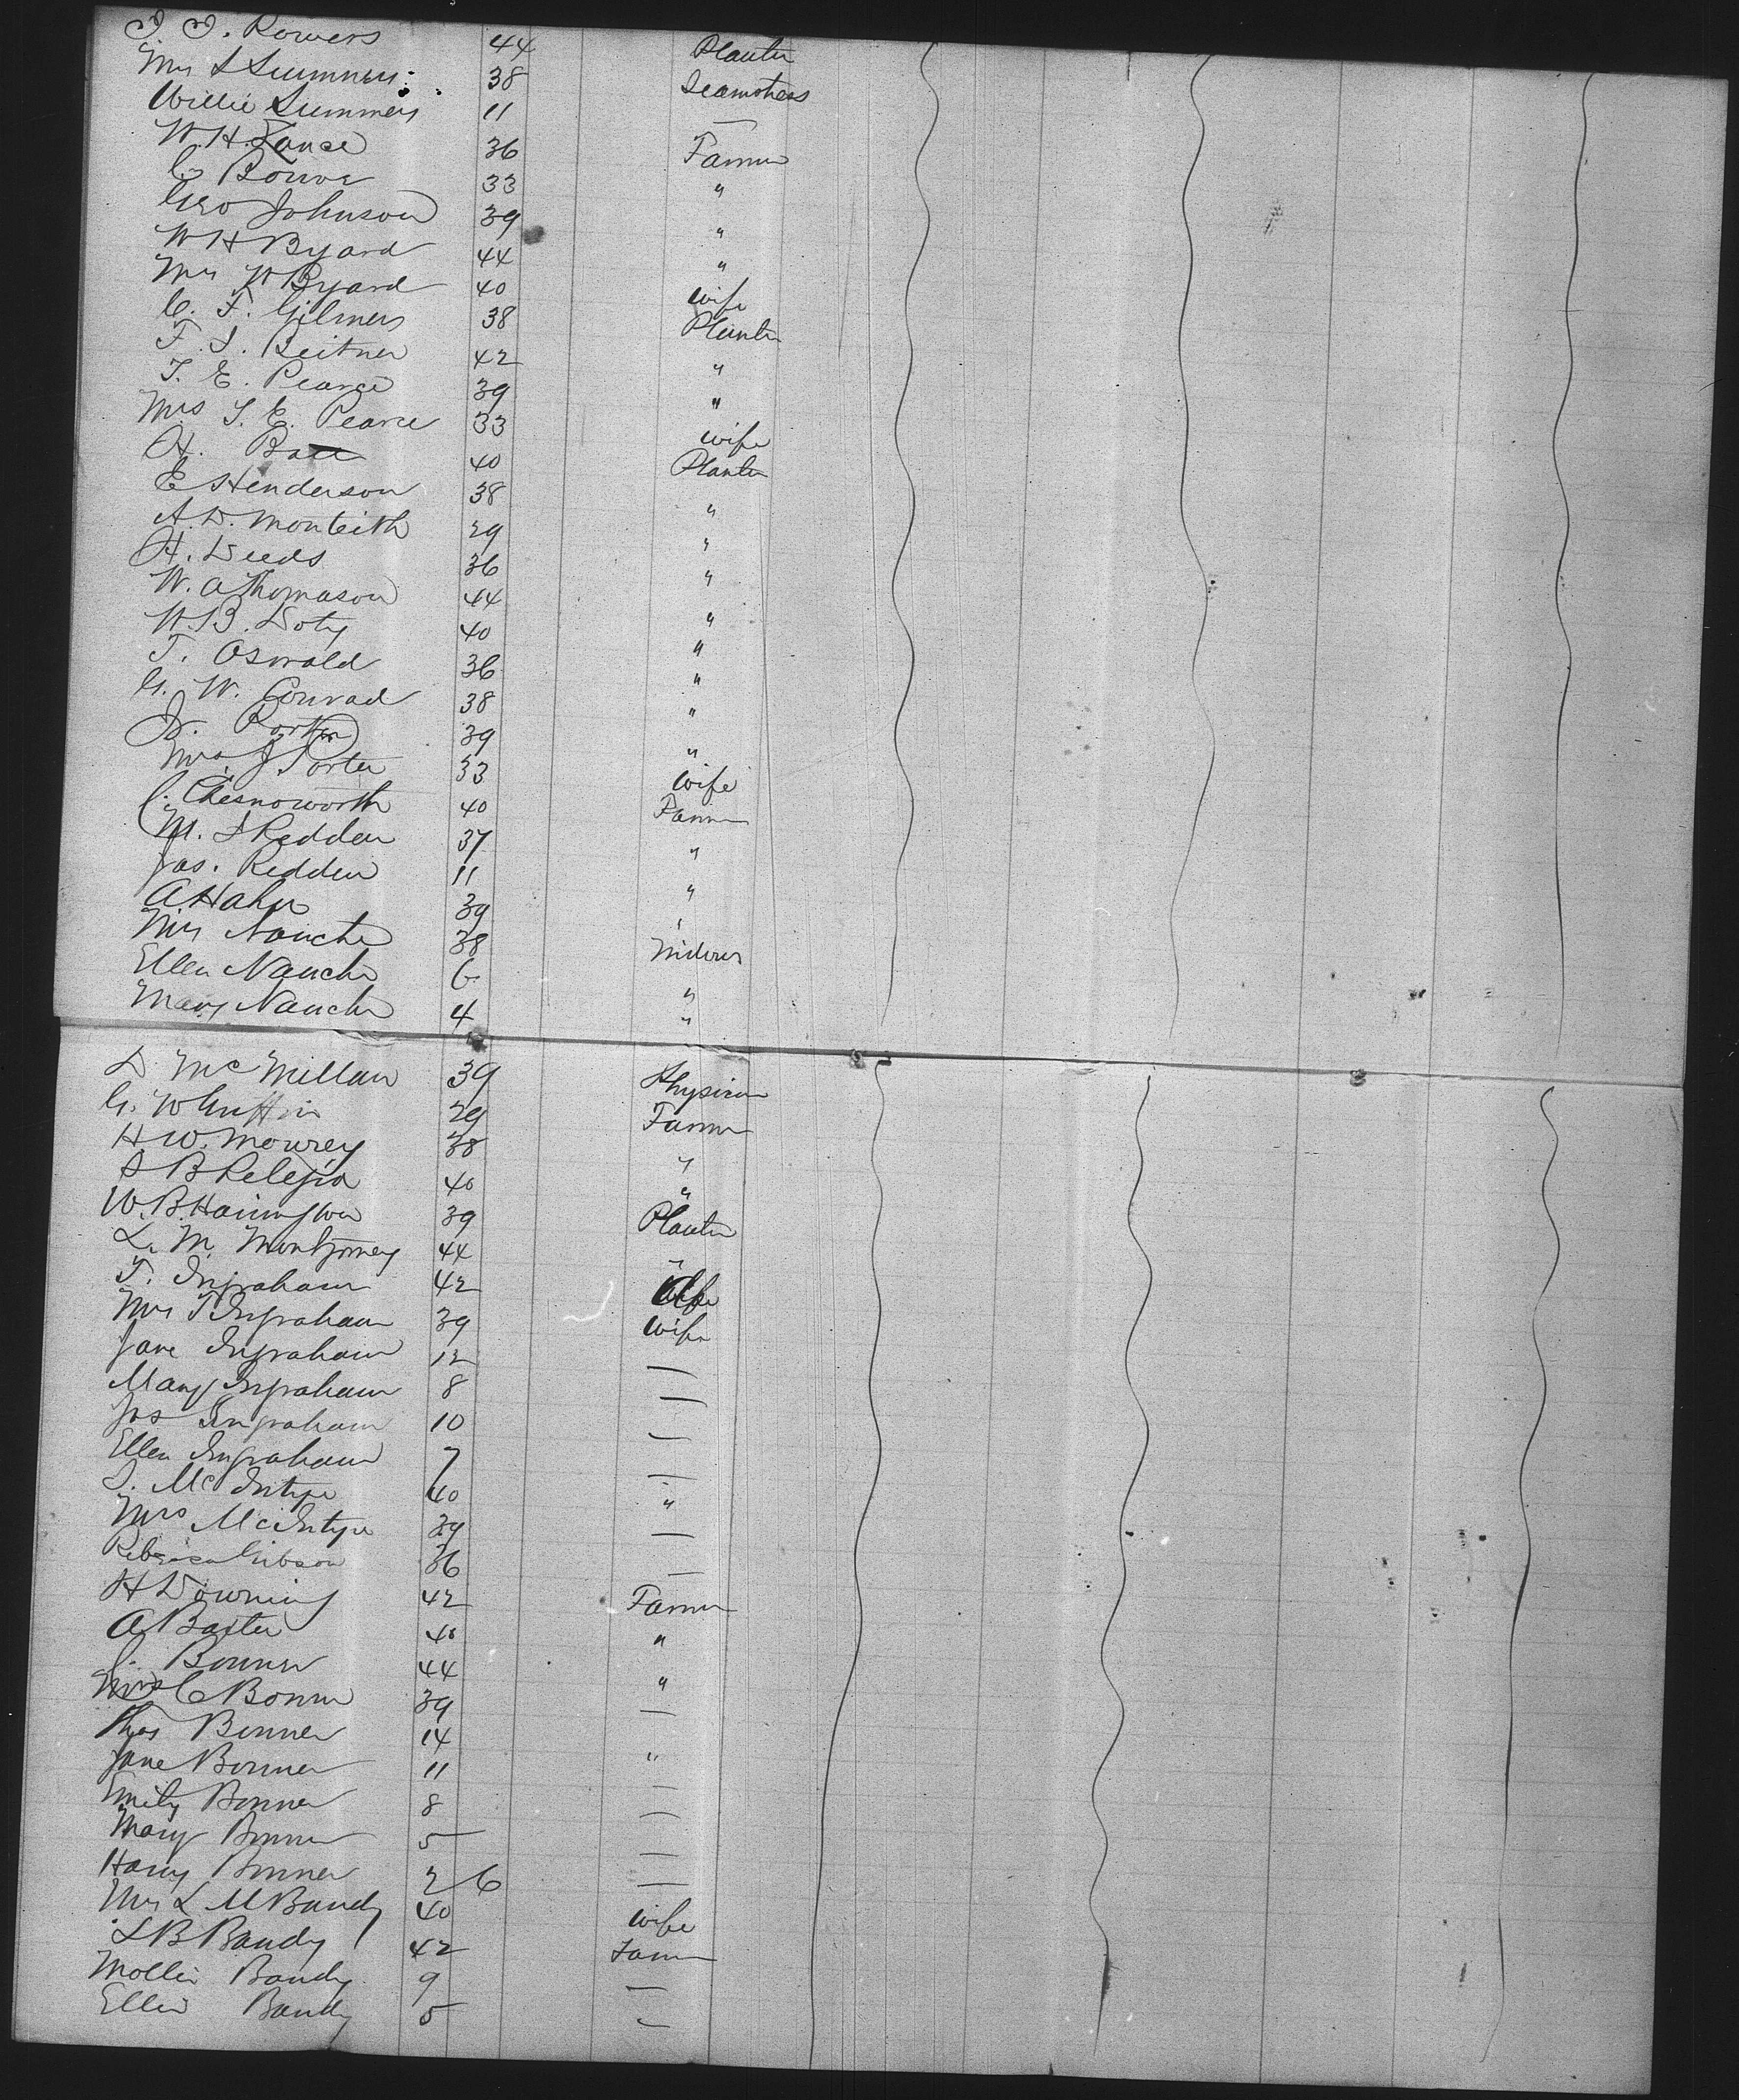 J. J. Rowers 44 Planter
Mrs S Summers 38 Seamstress
Willie Summers 11 —
W. H. Lance 36 Farmer
C. Bower 33 "
Geo Johnson 39 "
W H Byard 44 "
Mrs W Byard 40 Wife
C. F. Gilmers 38 Planter
F. S. Beitner 42 "
T. E. Pearce 39 "
Mrs T. E. Pearce 33 Wife
H. Ball 40 Planter
E Henderson 38 "
A. D. Monteith 29 "
H. Deeds 36 "
W. A Thomason 44 "
W. B. Doty 40 "
T. Oswald 36 "
G. W. Conrad 38 "
J. Porter 39 "
Mrs J Porter 33 Wife
C. Chesnoworth 40 Farmer
M. S Redden 37 "
Jas. Redden 11 "
A Hahn 39 "
Mrs Nauche 38 Widow
Ellen Nauche 6 "
Mary Nauche 4 "
D. McMillan 39 Physician
G. W Griffin 29 Farmer
H. W. Mowrey 38 "
S B 40 "
W. B. Harington 39 Planter
L. M. Montgomery 44 "
T. Ingraham 42
Mrs T Ingraham 39 Wife
Jane Ingraham 12 —
Mary Ingraham 8 —
Jas Ingraham 10 —
Ellen Ingraham 7 —
S. McIntyre 40 "
Mrs McIntyre 39 —
Rebecca Gibson 36 —
H Downing 42 Farmer
A Baxter 40 "
C. Bonner 44 "
Mrs C Bonner 39 —
Thos Bonner 14 "
Jane Bonner 11 —
Emily Bonner 8 —
Mary Bonner 5 —
Harry Bonner 2 6 —
Mrs L M Bandy 40 Wife
L B Bandy 42 Farmer
Mollie Bandy 9 —
Ellie Bandy 5 —